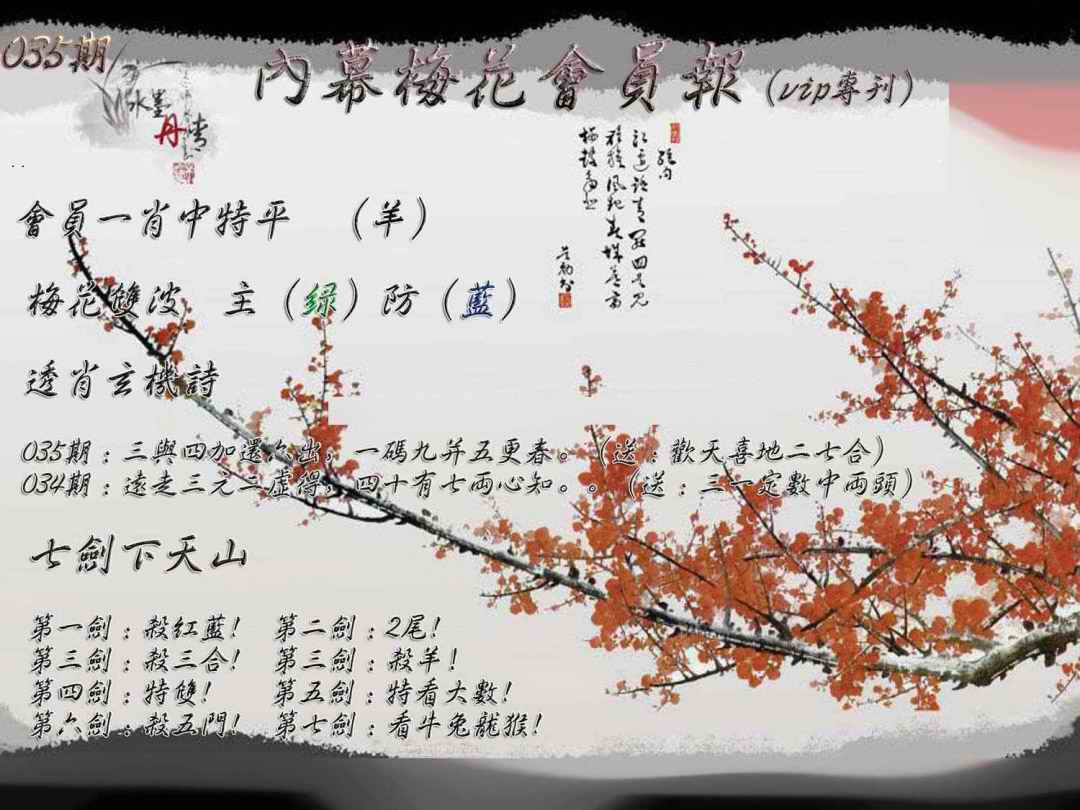 035期
內幕梅花會員報（vip專刊）
水墨
丹情
會員一肖中特平　（羊）
梅花雙波　主（绿）防（藍）
透肖玄機詩
035期：三與四加還 出，一碼九并五更春。（送：歡天喜地二七合）
034期：遠走三元二虛得，四十有七两心知。。（送：三一定數中两頭）
七劍下天山
第一劍：殺红藍！　第二劍：2尾！
第三劍：殺三合！　第三劍：殺羊！
第四劍：特雙！　第五劍：特看大數！
第六劍：殺五門！　第七劍：看牛兔龍猴！